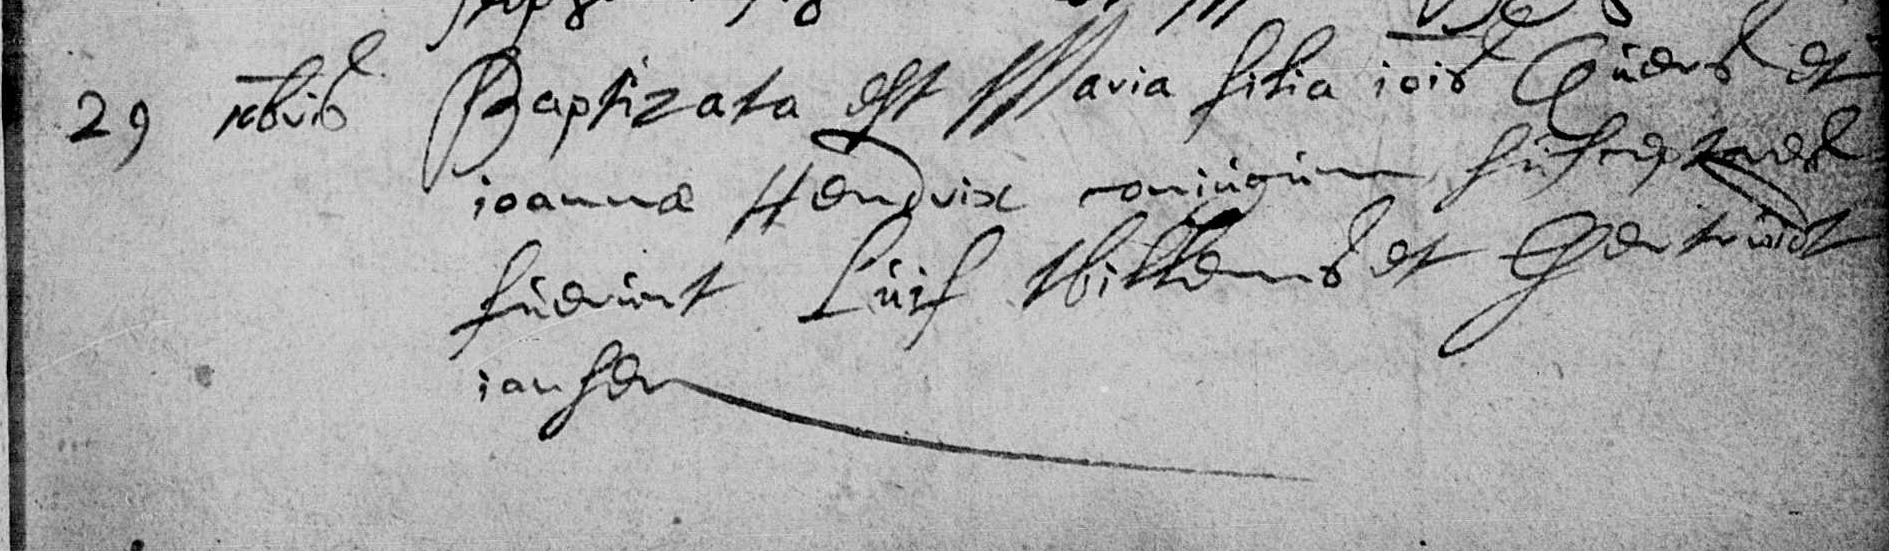 29 xbris Baptizata est Maria filia iois Cüers et
ioannæ Hendrix coniugüm süsceptores
füerünt Lüis Willems et Gertrüidt
iansen